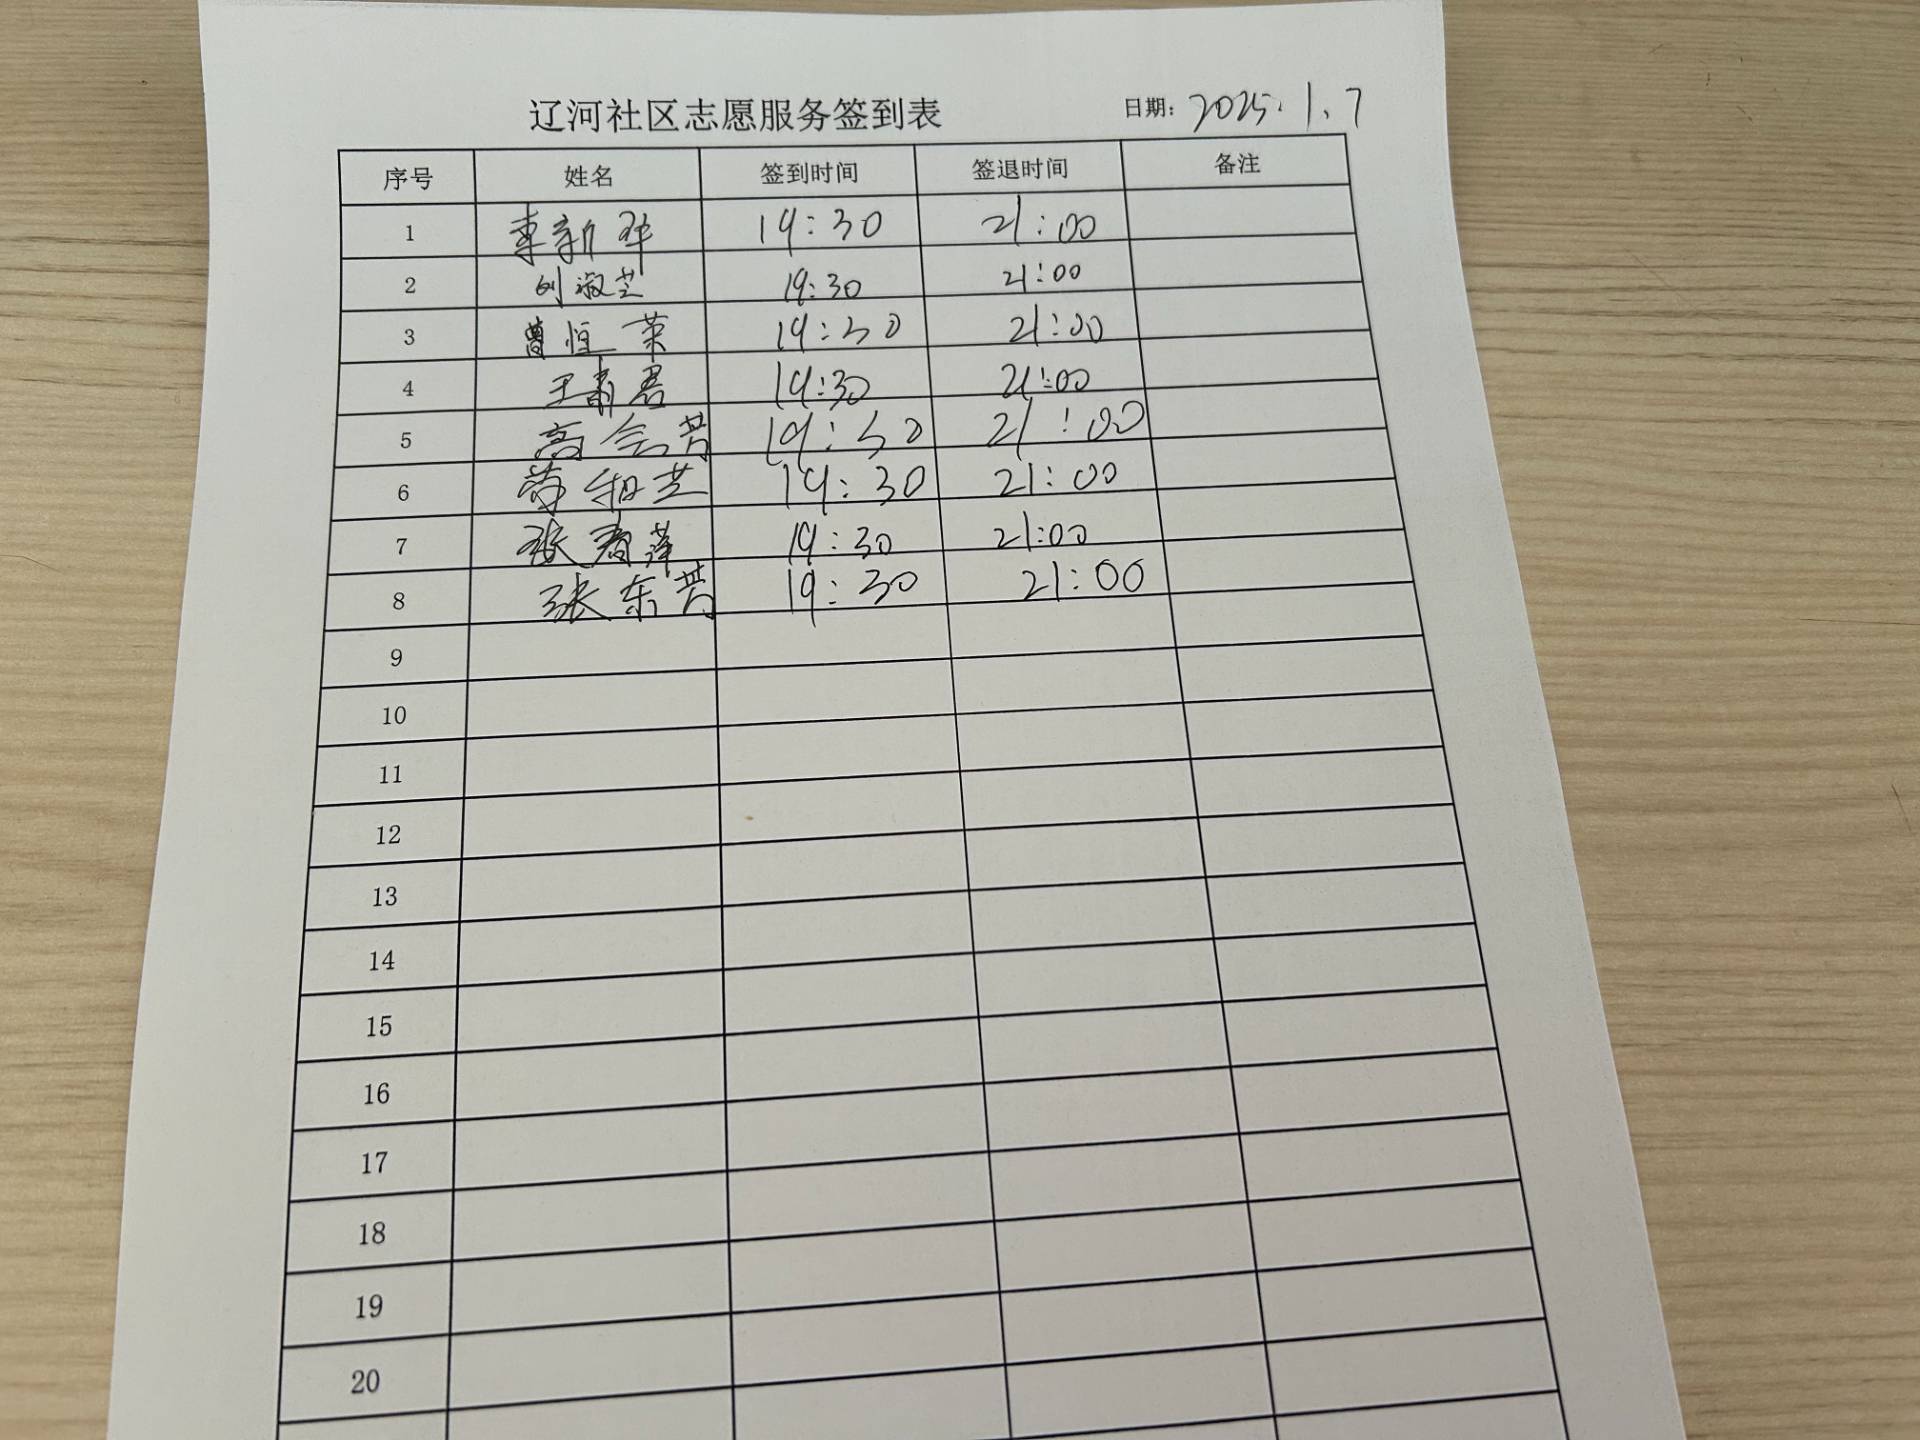 辽河社区志愿服务签到表 日期: 2025.1.7
序号 姓名 签到时间 签退时间 备注
1 新华 19:30 21:00
2 刘淑芝 19:30 21:00
3 曹恒荣 19:30 21:00
4 王君 19:30 21:00
5 高会芳 19:30 21:00
6 芝 19:30 21:00
7 张春萍 19:30 21:00
8 张东芳 19:30 21:00
9
10
11
12
13
14
15
16
17
18
19
20